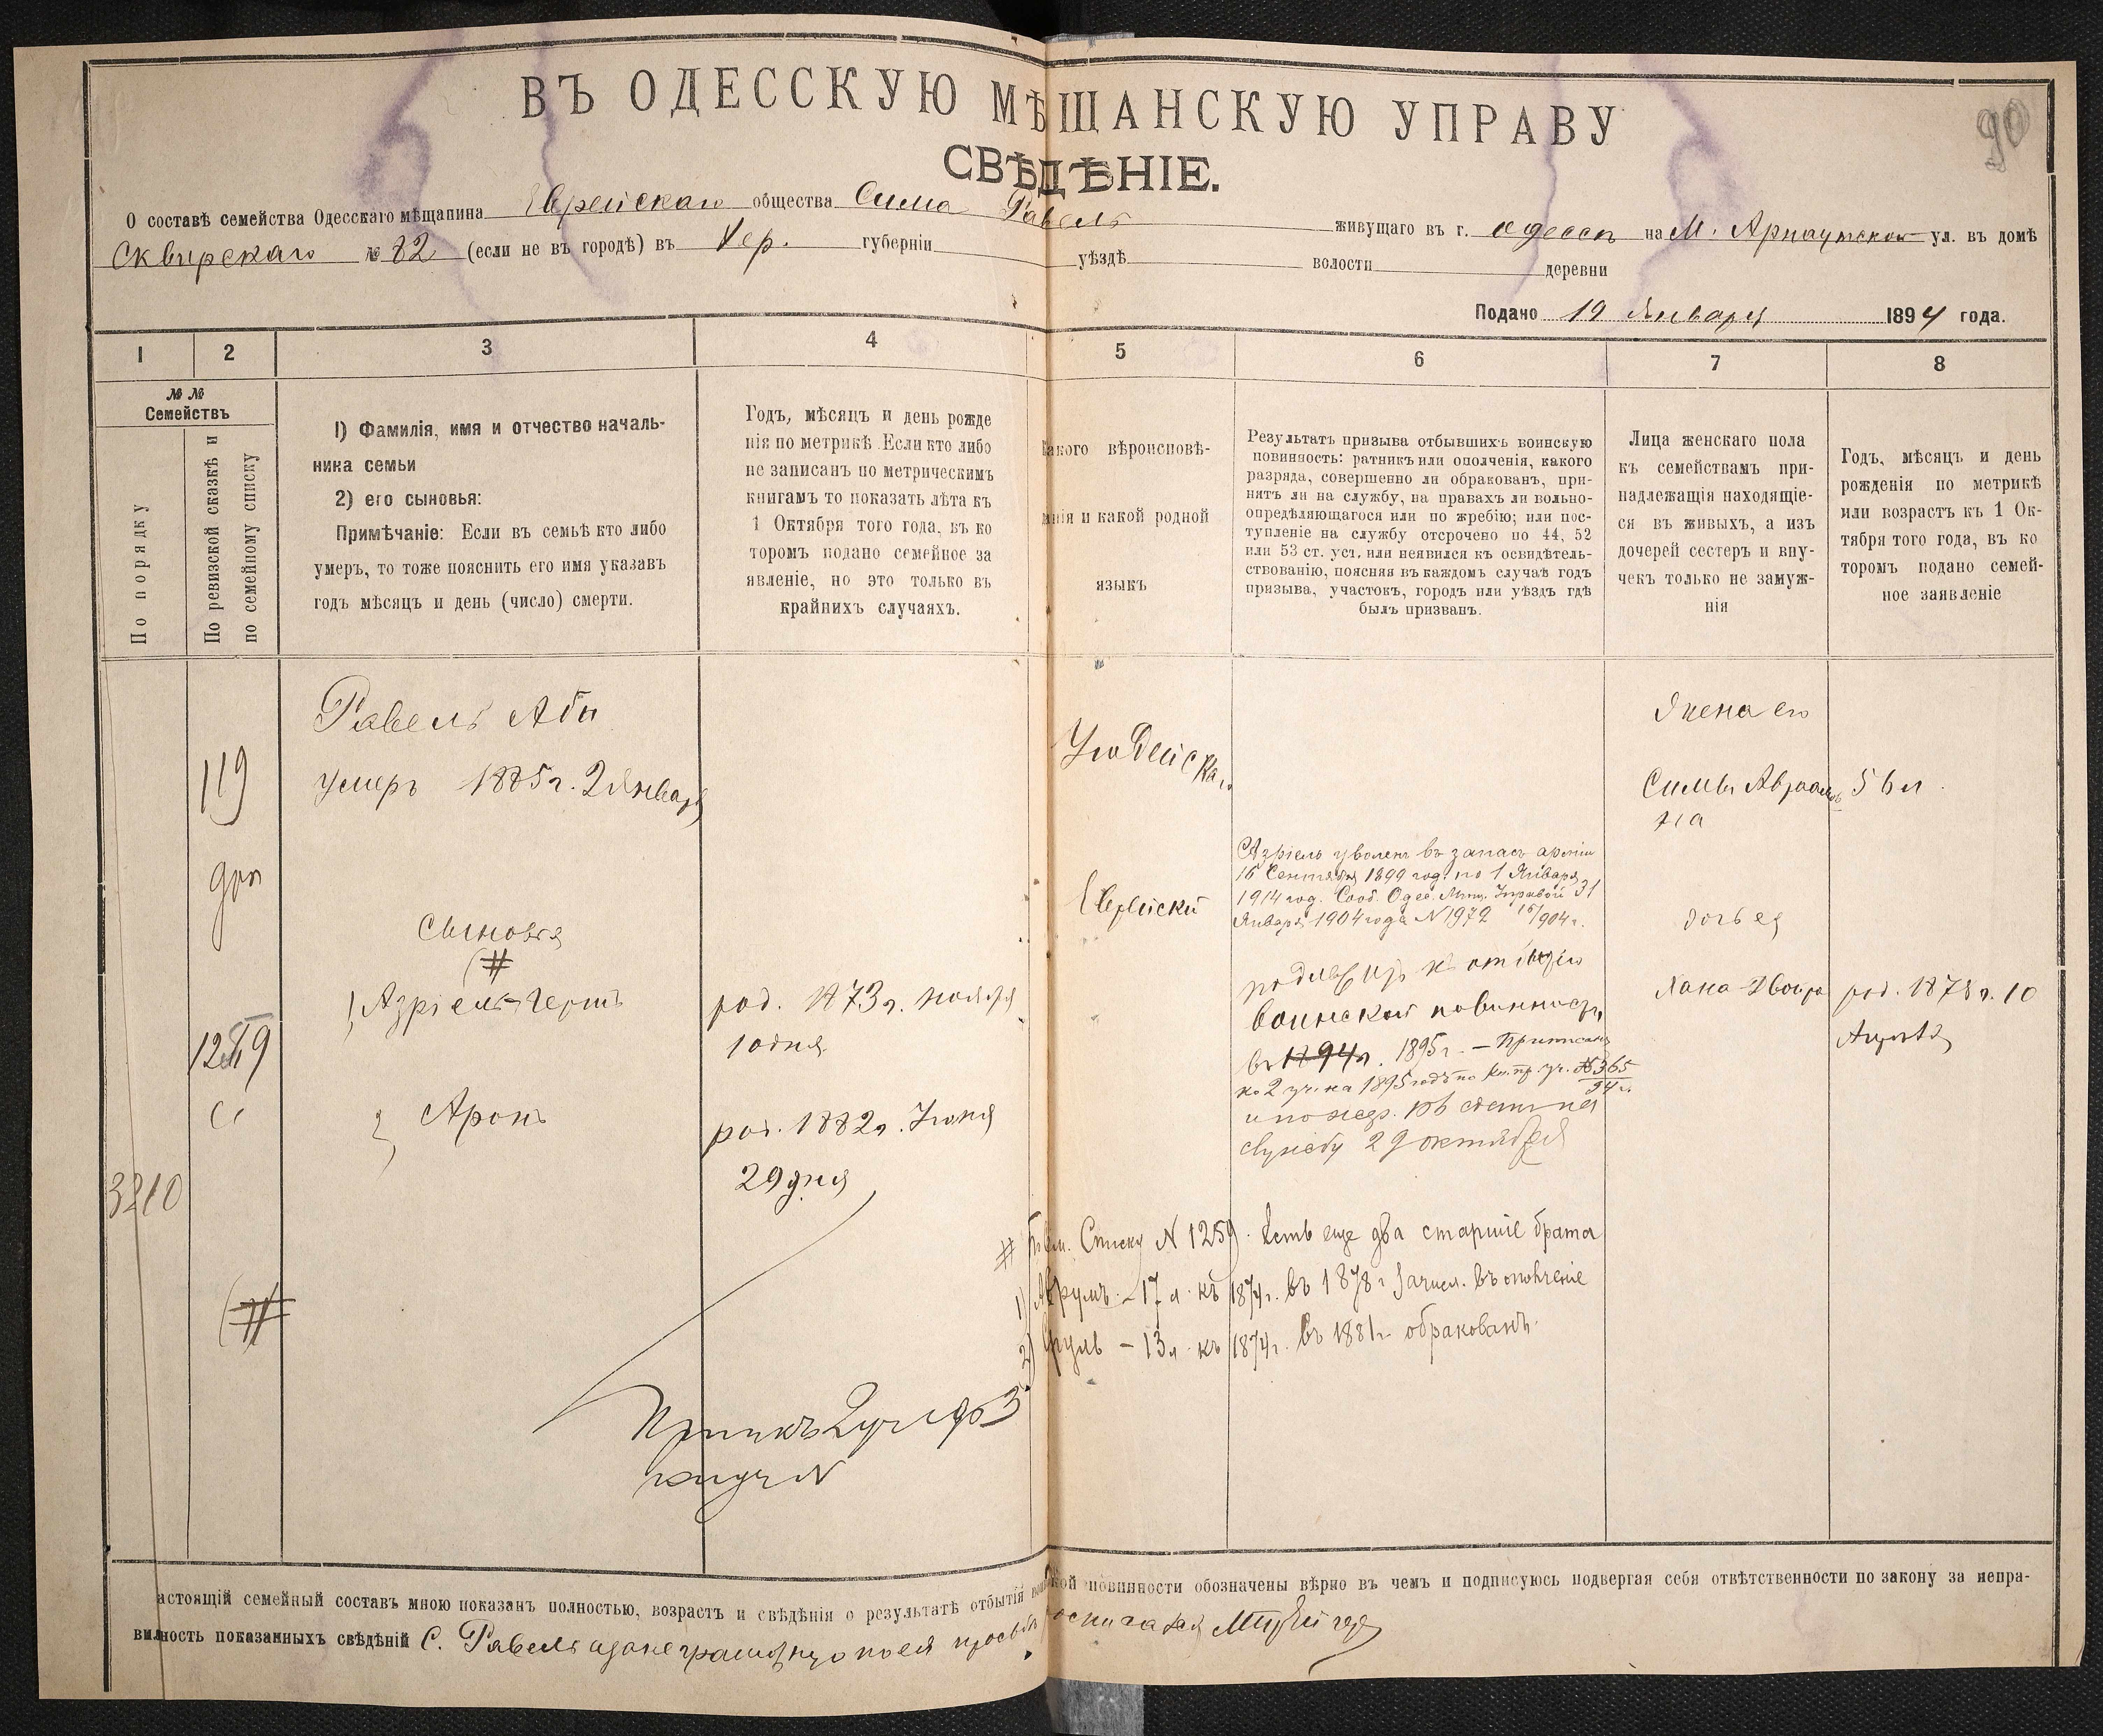 90
ВЪ ОДЕССКУЮ МѢЩАНСКУЮ УПРАВУ
СВѢДѢНІЕ.
О составѣ семейства Одесскаго мѣщанина Еврейскаго общества Сима Равель живущаго въ г. Одессѣ на М. Арнаутской ул. въ домѣ
Сквирскаго № 82 (если не въ городѣ) въ Хер. губерніи уѣздѣ волости деревни
Подано 19 Января 1894 года.
1
2
3
4
5
6
7
8
№ №
Семействъ
По порядку
По ревизской сказкѣ и
по семейному списку
1) Фамилія, имя и отчество началь-
ника семьи
2) его сыновья:
Примѣчаніе: Если въ семьѣ кто либо
умеръ, то тоже пояснить его имя указавъ
годъ мѣсяцъ и день (число) смерти.
Годъ, мѣсяцъ и день рожде
нія по метрикѣ. Если кто либо
не записанъ по метрическимъ
книгамъ то показать лѣта къ
1 Октября того года, въ ко
торомъ подано семейное за
явленіе, но это только въ
крайнихъ случаяхъ.
акого вѣроисповѣ-
анія и какой родной
языкъ
Результатъ призыва отбывшихъ воинскую
повинность: ратникъ или ополченія, какого
разряда, совершенно ли обракованъ, при-
нятъ ли на службу, на правахъ ли вольно-
опредѣляющагося или по жребію; или пос-
тупленіе на службу отсрочено по 44, 52
или 53 ст. уст. или неявился къ освидѣтель-
ствованію, поясняя въ каждомъ случаѣ годъ
призыва, участокъ, городъ или уѣздъ гдѣ
былъ призванъ.
Лица женскаго пола
къ семействамъ при-
надлежащія находящіе-
ся въ живыхъ, а изъ
дочерей сестеръ и вну-
чекъ только не замуж-
нія
Годъ, мѣсяцъ и день
рожденія по метрикѣ
или возрастъ къ 1 Ок-
тября того года, въ ко
торомъ подано семей-
ное заявленіе
119
1259
3210
#
Равель Аби
умеръ 1885 г. 2 Января
Сыновья
#
1) Азріель-Герш
род. 1873 г. ноября
10 дня
2) Аронъ
род. 1882 г. Іюня
29 дня
Іюдейска
Еврейскій
Азріель уволенъ въ запасъ арміи
16 Сентября 1899 год. по 1 Января
1914 год. Сооб. Одес. Мѣщ. Управой 31
Января 1904 года N 1972
воинской повинност
въ 1894 г. 1895 г. – Приписанъ
ко 2 уч. на 1895 годъ по №365
службу 29 октября
Жена его
Симы Авраамов
на
56 л.
дочь ея
Хана-Двойра
род. 1878 г. 10
Августа
# Списку N 1259. Есть еще два старшіе брата
1) Аврумъ – 17 л. къ 1874 г. въ 1878 г. зачисл. въ ополченіе
2) Сруль – 13 л. къ 1874 г. въ 1881 г. обракованъ.
астоящій семейный составъ мною показанъ полностью, возрастъ и свѣдѣнія о результатѣ отбытія повинности обозначены вѣрно въ чемъ и подписуюсь подвергая себя отвѣтственности по закону за непра-
вильность показанныхъ свѣдѣній С. Равель а за неграмотную по ея просьбѣ